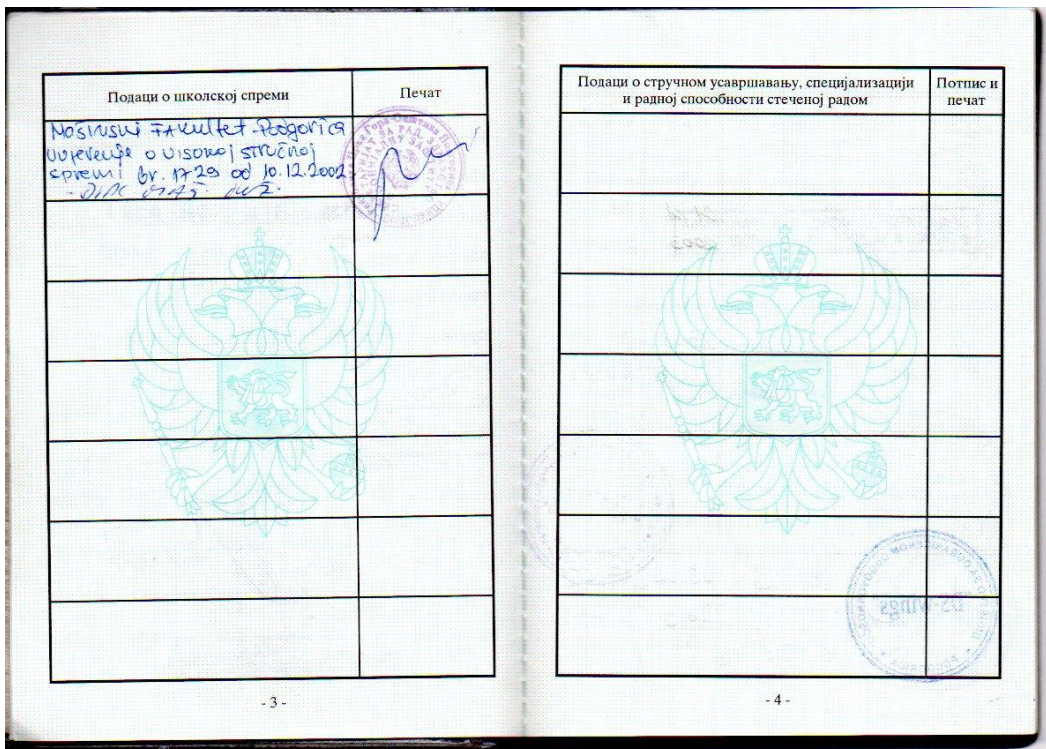 Подаци о школској спреми
Печат
Mašinski FAkultet - Podgorica
Uvjerenje o visokoj stručnoj
spremi br. 1729 od 10.12.2002
- Dipl. maš. inž.
- 3 -
Подаци о стручном усавршавању, специјализацији
и радној способности стеченој радом
Потпис и
печат
DS-Wings
- 4 -